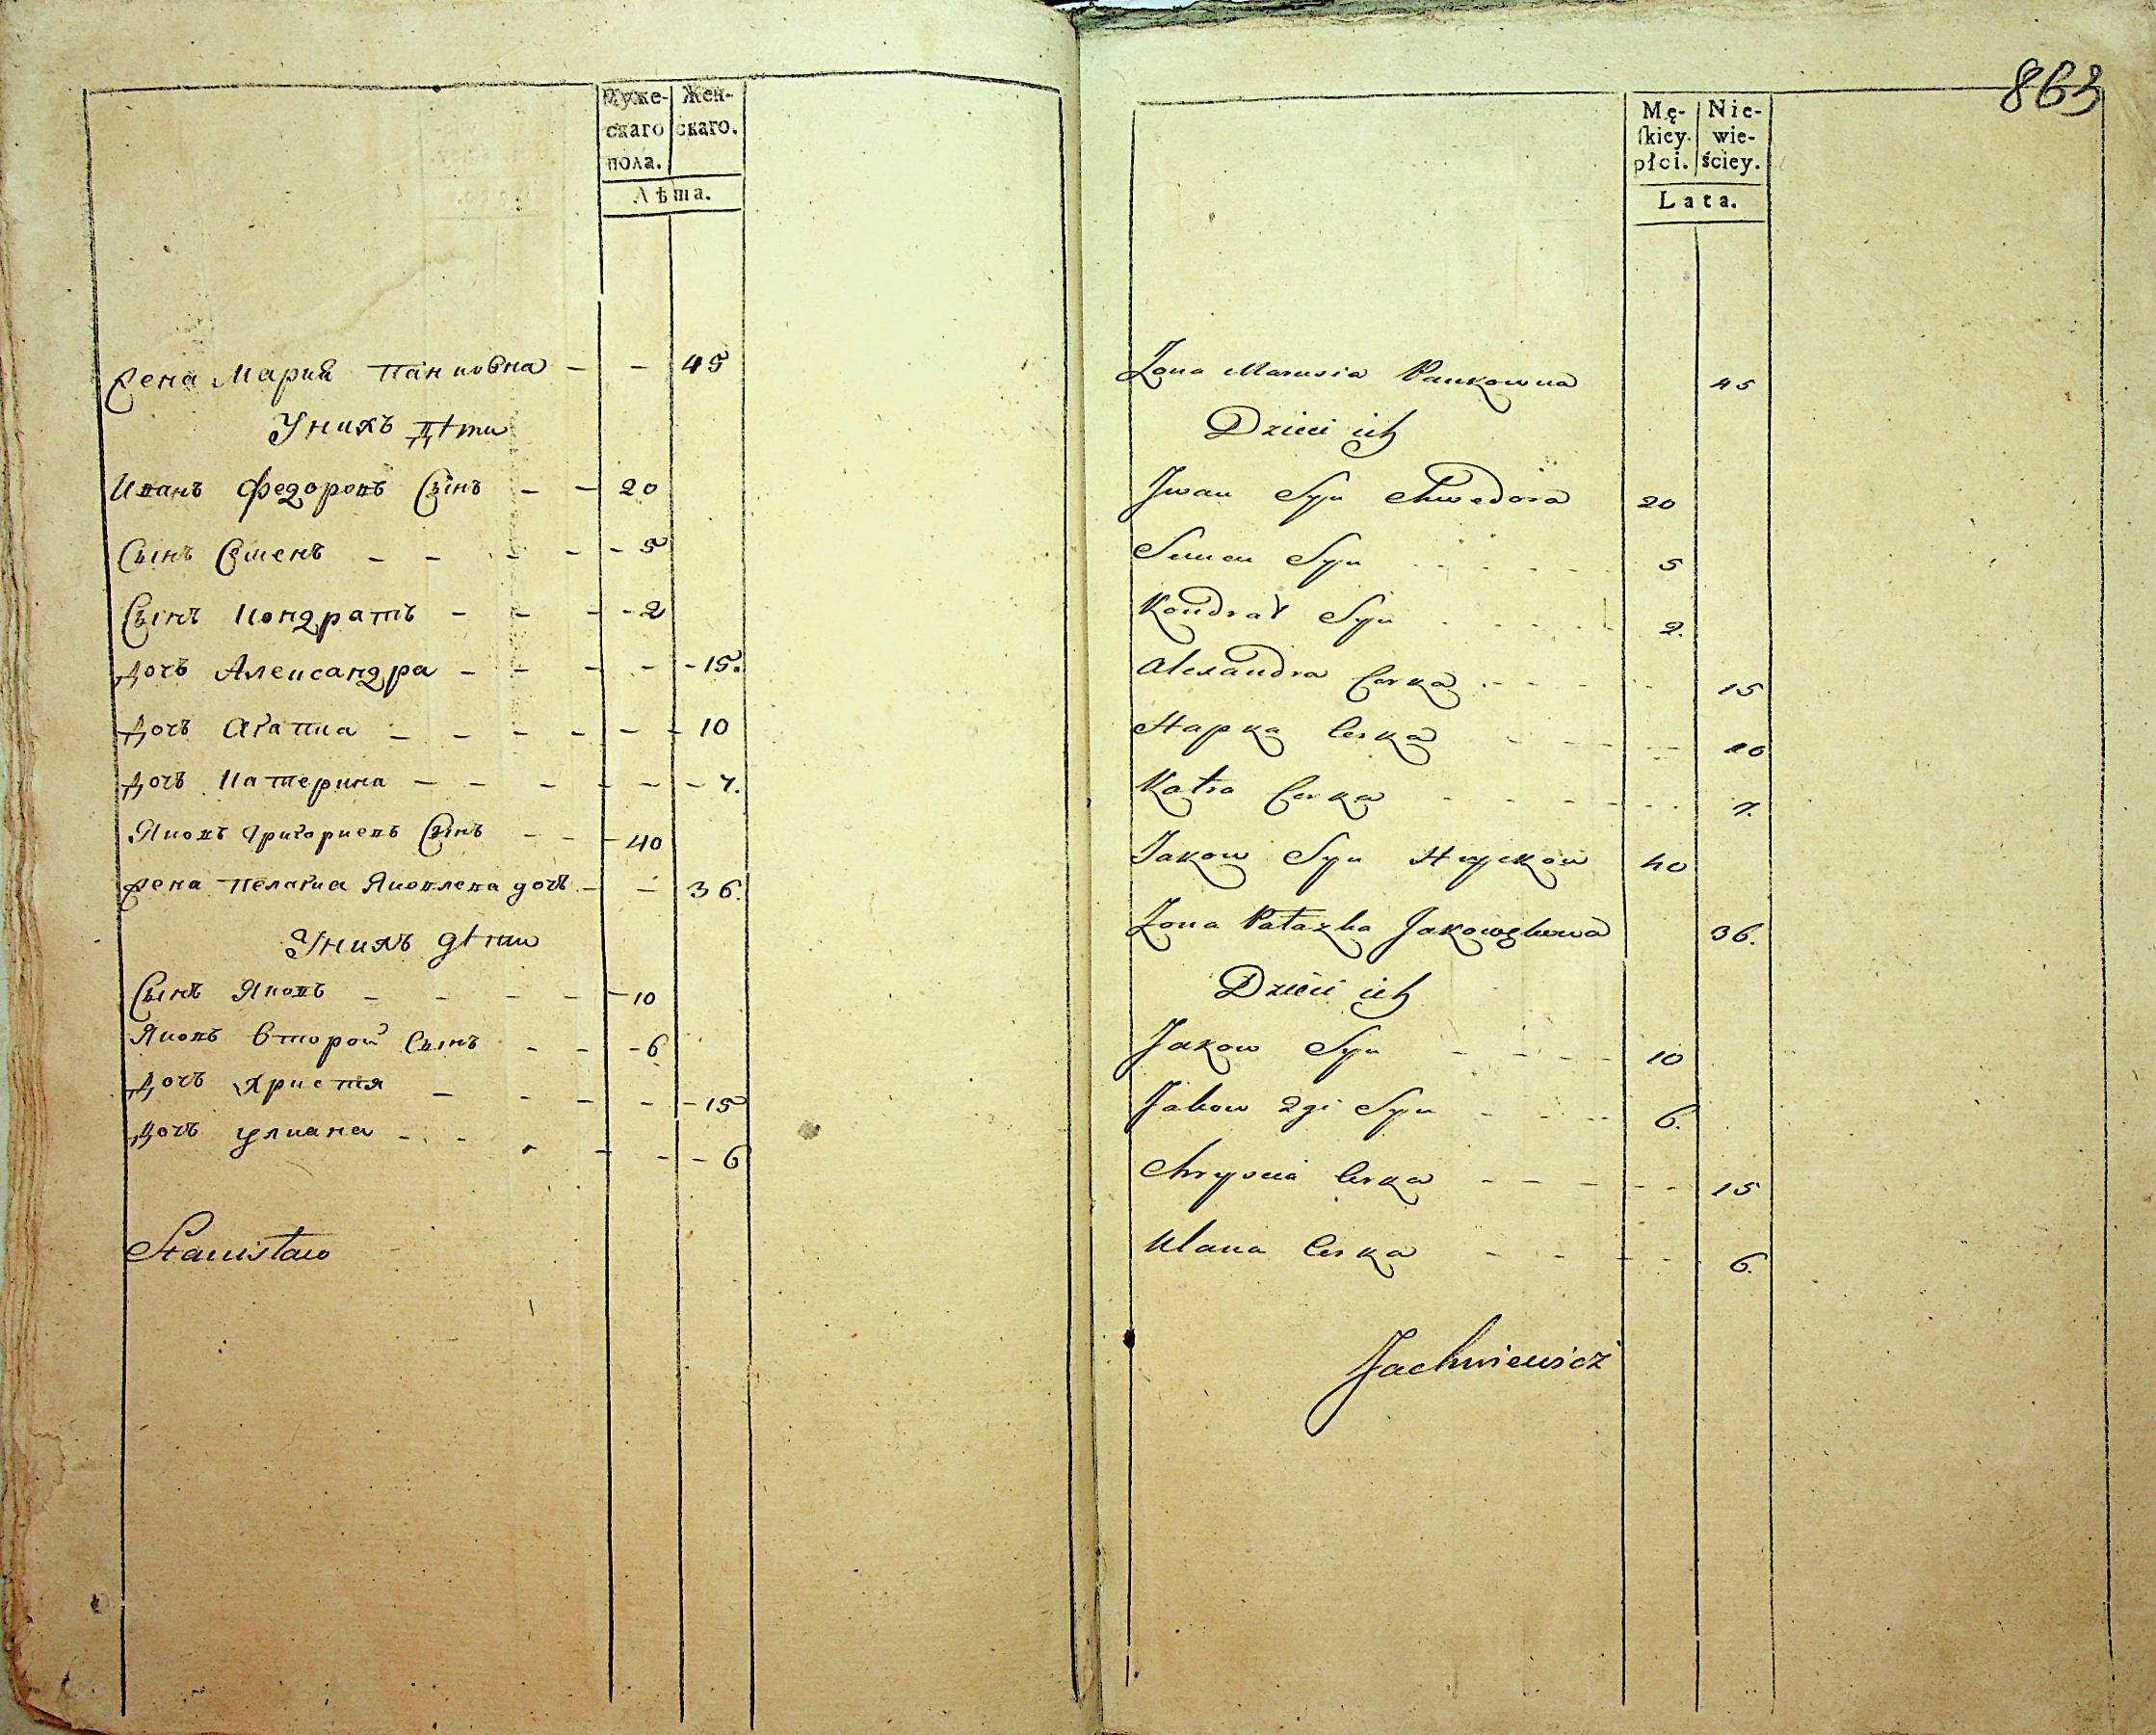 Муже- Жен-
скаго скаго.
пола.
Лѣта.
Жена Мария Панковна - - 45
У нихъ дѣти
Иванъ Федоровъ Сынъ - - 20
Сынъ Семенъ - - - - - 5
Сынъ Кондратъ - - - - 2
Дочь Александра - - - - - 15.
Дочь Агапиа - - - - - - 10
Дочь Катерина - - - - - - 7.
Яковъ Григориевъ Сынъ - - - 40
Жена Пелагиа Яковлева дочь - - 36.
У нихъ дѣти
Сынъ Яковъ - - - - - 10
Яковъ Второй Сынъ - - - 6
Дочь Христя - - - - - 15
Дочь Улиана - - - - - - 6
Stanisław
863
Mę- Nie-
ſkiey wie-
płci. ściey.
Lata.
Żona Marusia Pankowna 45
Dzieci ich
Jwan Syn Chwedora 20
Semen Syn - - - - - - 5
Kondrat Syn - - - - - 2.
Alexandra Corka - - - - - 15
Hapka Corka - - - - - 10
Katra Corka - - - - - - - 7.
Jakow Syn Hryckow 40
Żona Pałazka 36.
Dzieci ich
Jakow Syn - - - - 10
Jakow 2gi Syn - - - - 6.
Chryscia Corka - - - - - 15
Ulana Corka - - - - - 6.
Jachniewicz